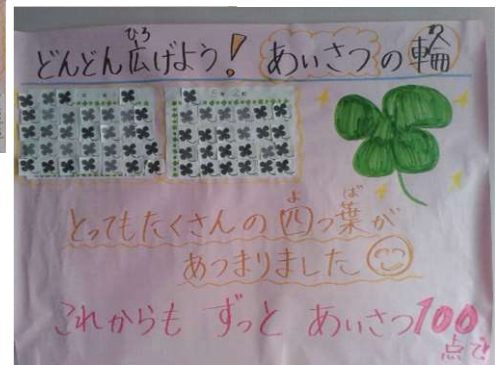 どんどん広げよう！ あいさつの輪
とってもたくさんの四つ葉が
あつまりました
これからも ずっと あいさつ100
点で